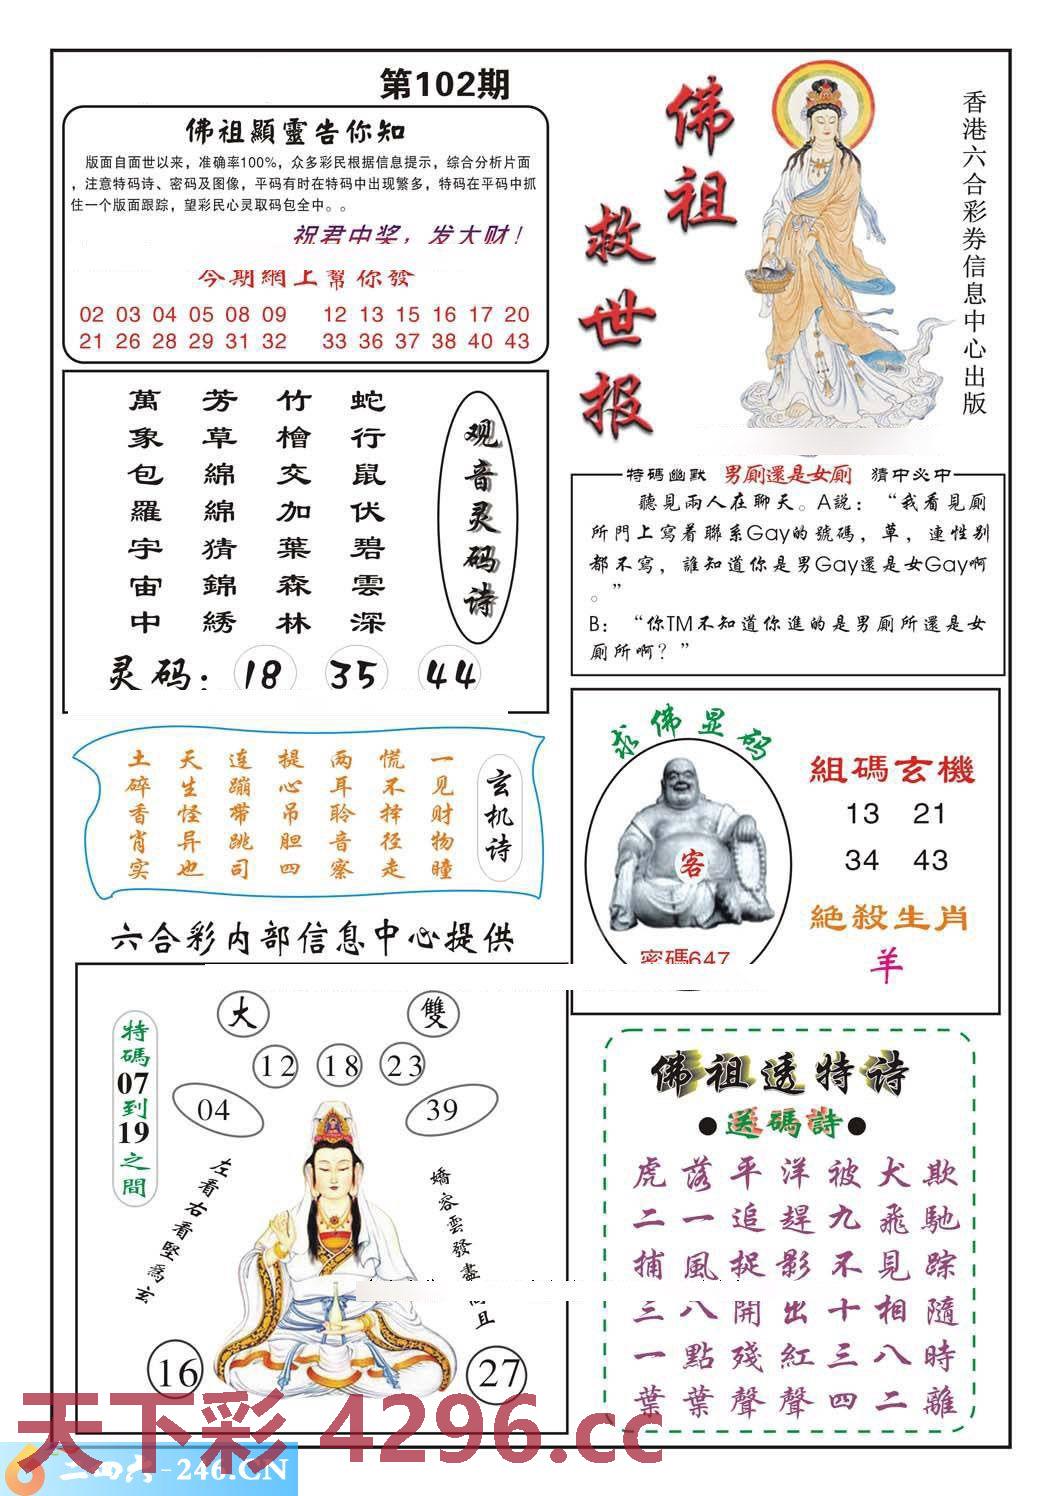 第102期
佛祖顯靈告你知
版面自面世以来，准确率100%，众多彩民根据信息提示，综合分析片面
，注意特码诗、密码及图像，平码有时在特码中出现繁多，特码在平码中抓
住一个版面跟踪，望彩民心灵取码包全中。。
祝君中奖，发大财！
今期網上幫你發
02 03 04 05 08 09 12 13 15 16 17 20
21 26 28 29 31 32 33 36 37 38 40 43
佛祖
救世报
香港六合彩券信息中心出版
观音灵码诗
蛇行鼠伏碧雲深
竹檜交加葉森林
芳草綿綿猜錦綉
萬象包羅宇宙中
灵码：18 35 44
特碼幽默 男厕還是女厕 猜中必中
聽見兩人在聊天。A説：“我看見厕
所門上寫着聯系Gay的號碼，草，連性别
都不寫，誰知道你是男Gay還是女Gay啊
。”
B：“你TM不知道你進的是男厕所還是女
厕所啊？”
玄机诗
一见财物瞳
慌不择径走
两耳聆音察
提心吊胆四
连蹦带跳司
天生怪异也
土碎香肖实
求佛显码
客
密碼647
組碼玄機
13 21
34 43
絶殺生肖
羊
六合彩内部信息中心提供
特碼07到19之間
大 雙
12 18 23
04 39
左看右看堅爲玄
嬌容雲發盡
且
16 27
佛祖透特诗
●送碼詩●
虎落平洋被犬欺
二一追趕九飛馳
捕風捉影不見踪
三八開出十相隨
一點殘紅三八時
葉葉聲聲四二離
天下彩 4296.cc
二四六-246.CN